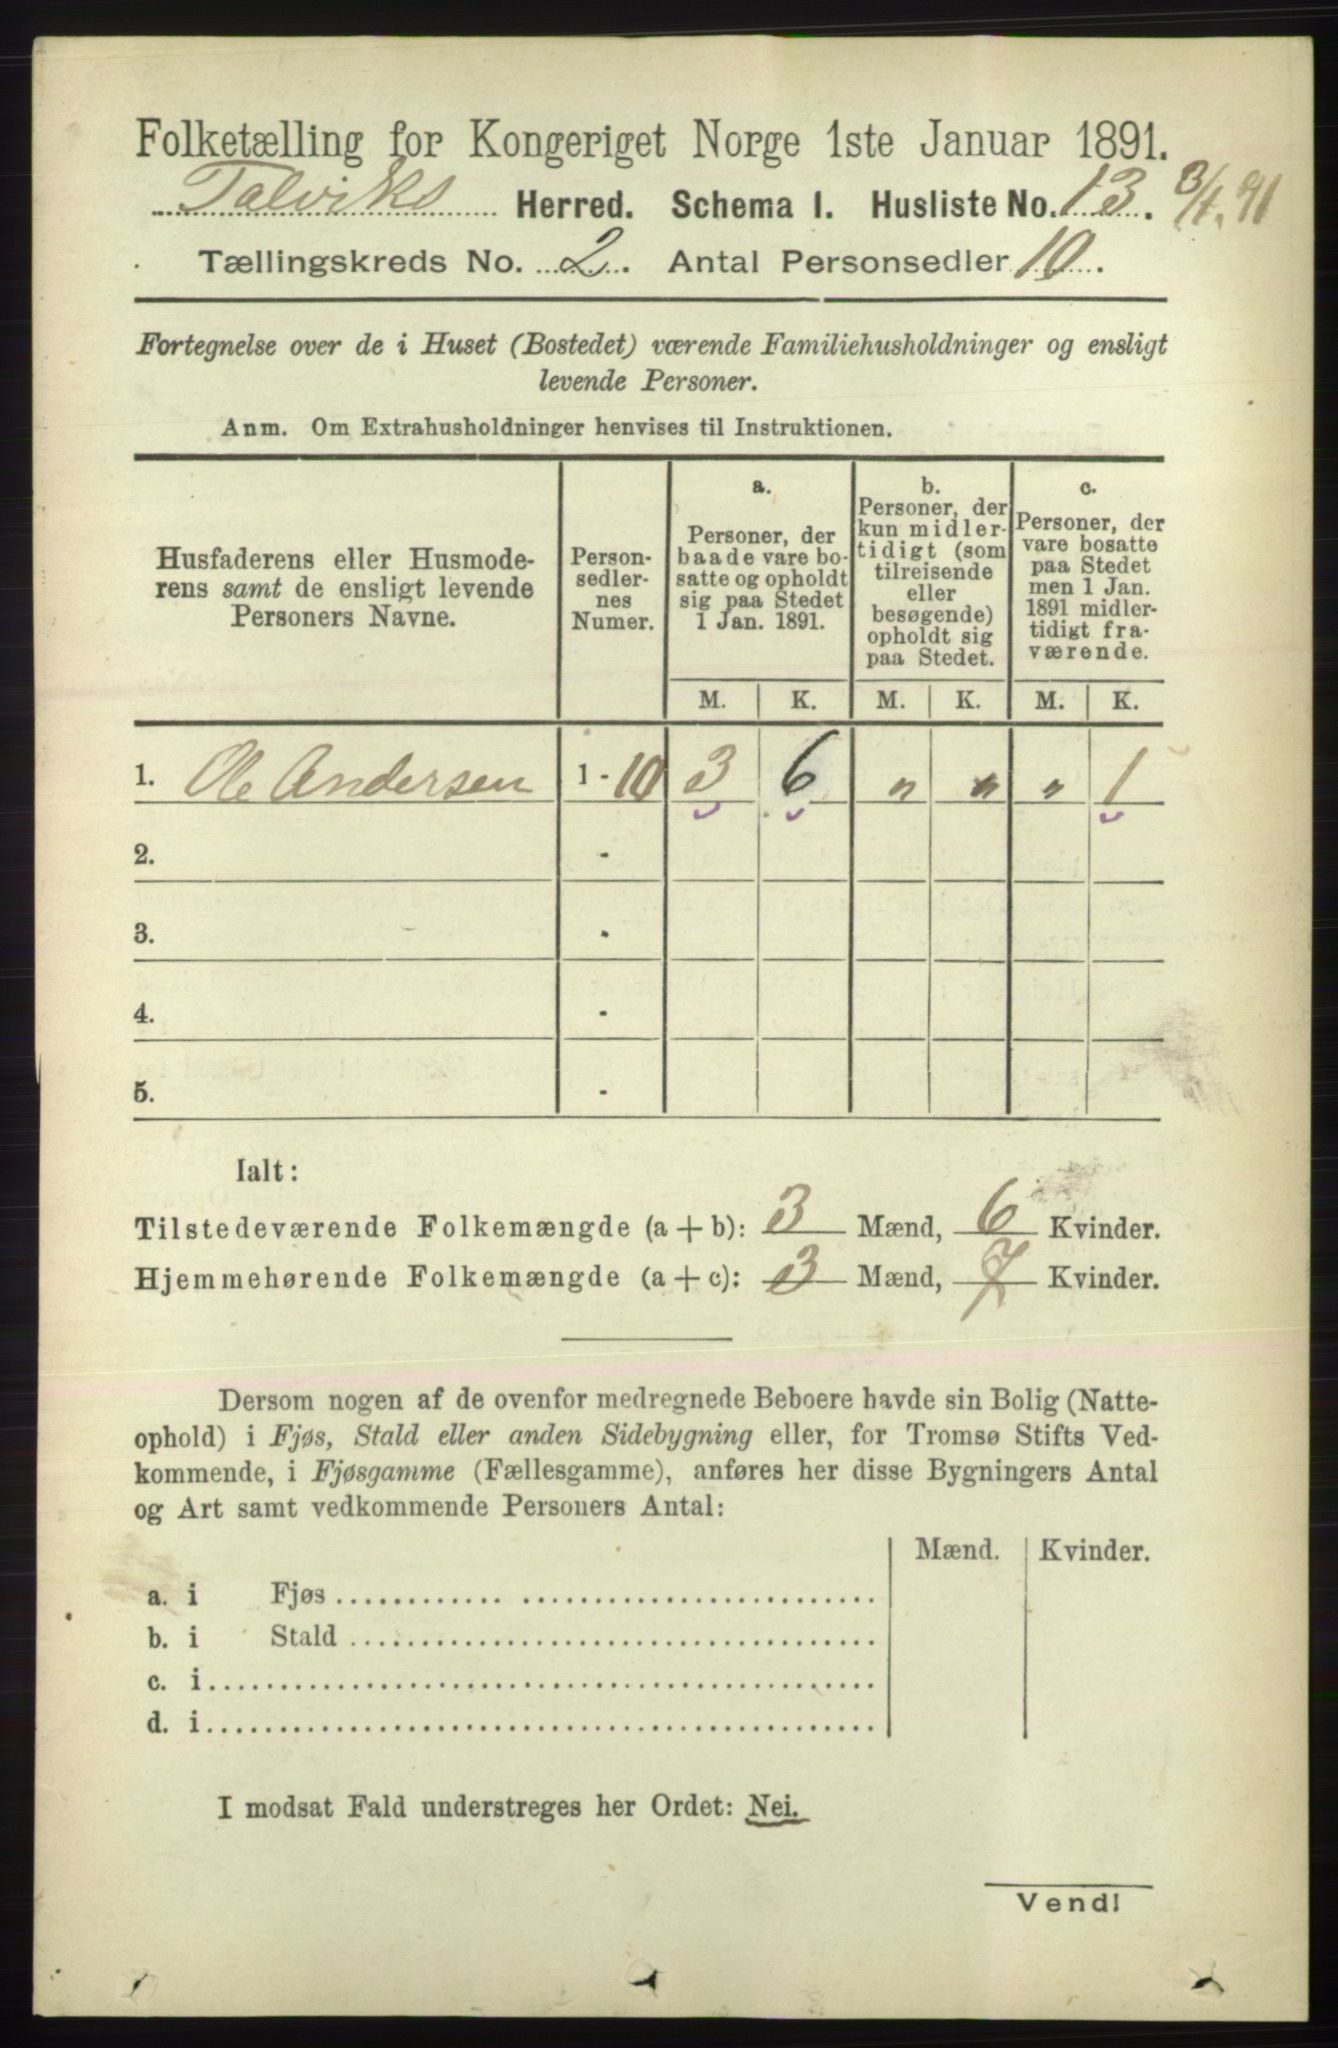 Folketælling for Kongeriget Norge 1ste Januar 1891.
Talviks Herred. Schema I. Husliste No. 13. 3/1. 91
Tællingskreds No. 2. Antal Personsedler 10.
Fortegnelse over de i Huset (Bostedet) værende Familiehusholdninger og ensligt
levende Personer.
Anm. Om Extrahusholdninger henvises til Instruktionen.
Husfaderens eller Husmode-
rens samt de ensligt levende
Personers Navne.
Person-
sedler-
nes
Numer.
a.
Personer, der
baade vare bo-
satte og opholdt
sig paa Stedet
1 Jan. 1891.
b.
Personer, der
kun midler-
tidigt (som
tilreisende
eller
besøgende)
opholdt sig
paa Stedet.
c.
Personer, der
vare bosatte
paa Stedet
men 1 Jan.
1891 midler-
tidigt fra-
værende.
M. K. M. K. M. K.
1. Ole Andersen 1 - 10 3 6 " " " 1
2. -
3. -
4. -
5. -
Ialt:
Tilstedeværende Folkemængde (a + b): 3 Mænd, 6 Kvinder.
Hjemmehørende Folkemængde (a + c): 3 Mænd, 7 Kvinder.
Dersom nogen af de ovenfor medregnede Beboere havde sin Bolig (Natte-
ophold) i Fjøs, Stald eller anden Sidebygning eller, for Tromsø Stifts Ved-
kommende, i Fjøsgamme (Fællesgamme), anføres her disse Bygningers Antal
og Art samt vedkommende Personers Antal:
Mænd. Kvinder.
a. i Fjøs
b. i Stald
c. i
d. i
I modsat Fald understreges her Ordet: Nei.
Vend!